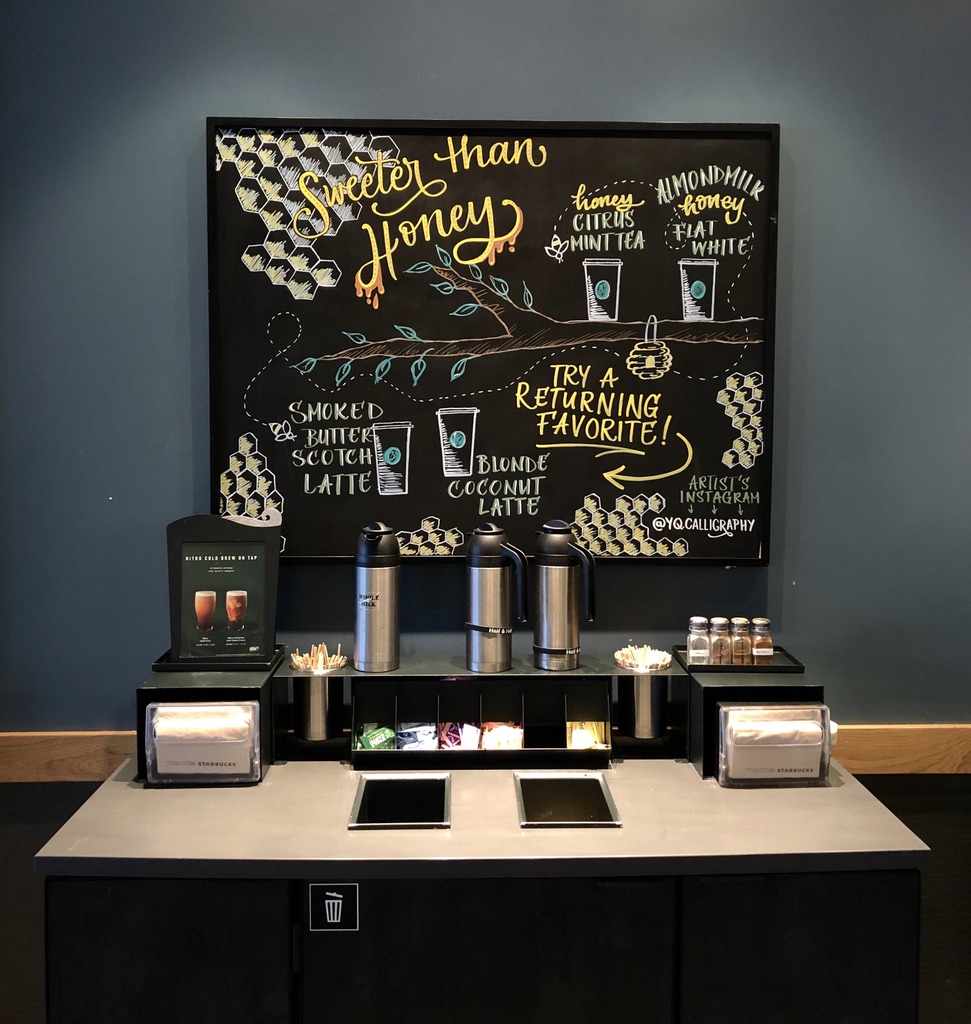 Sweeter than
Honey
honey
CITRUS
MINT TEA
ALMONDMILK
honey
FLAT
WHITE
TRY A
RETURNING
FAVORITE!
SMOKED
BUTTER
SCOTCH
LATTE
BLONDE
COCONUT
LATTE
ARTIST'S
INSTAGRAM
@YQ.CALLIGRAPHY
NITRO COLD BREW ON TAP
WHOLE
MILK
Half & Half
STARBUCKS
STARBUCKS